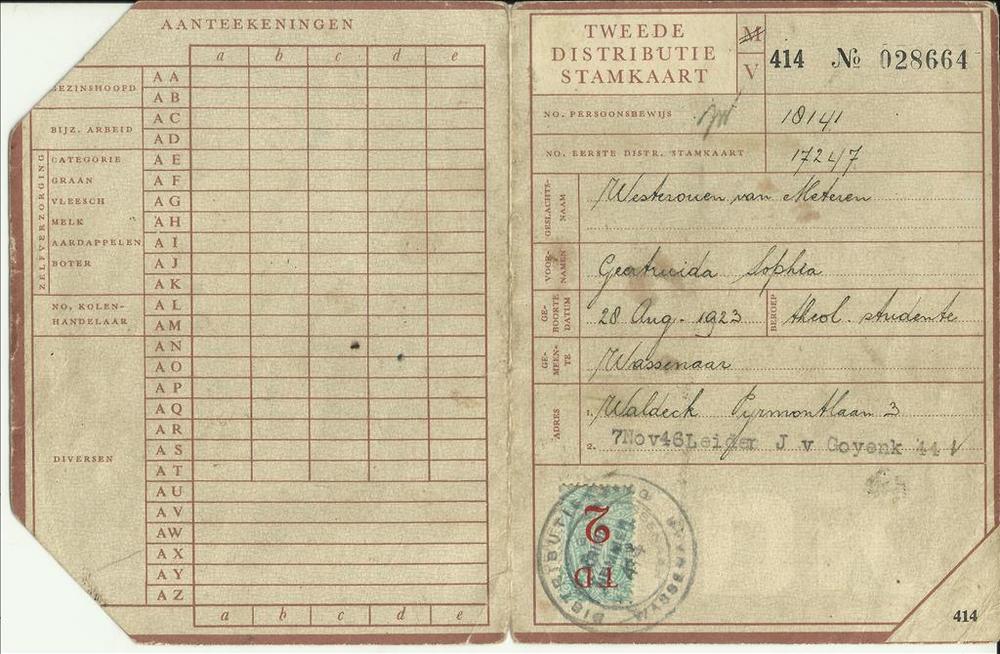 AANTEEKENINGEN
a b c d e
GEZINSHOOFD
AA
AB
BIJZ. ARBEID
AC
AD
ZELFVERZORGING
CATEGORIE AE
GRAAN AF
VLEESCH AG
MELK AH
AARDAPPELEN AI
BOTER AJ
AK
NO. KOLEN- AL
HANDELAAR AM
AN
AO
AP
AQ
AR
DIVERSEN AS
AT
AU
AV
AW
AX
AY
AZ
a b c d e
TWEEDE
DISTRIBUTIE
STAMKAART
M
V
414 № 028664
NO. PERSOONSBEWIJS 18141
NO. EERSTE DISTR. STAMKAART 17247
GESLACHTS-
NAAM
Westerouen van Meteren
VOOR-
NAMEN
Geertruida Sophia
GE-
BOORTE
DATUM
28 Aug. 1923
BEROEP
theol. studente
GE-
MEEN-
TE
Wassenaar
ADRES
1. Waldeck Pyrmontlaan 3
2. 7Nov46Leiden J v Goyenk 44
DISTRIBUTIE
WASSENAAR
2
TD
414